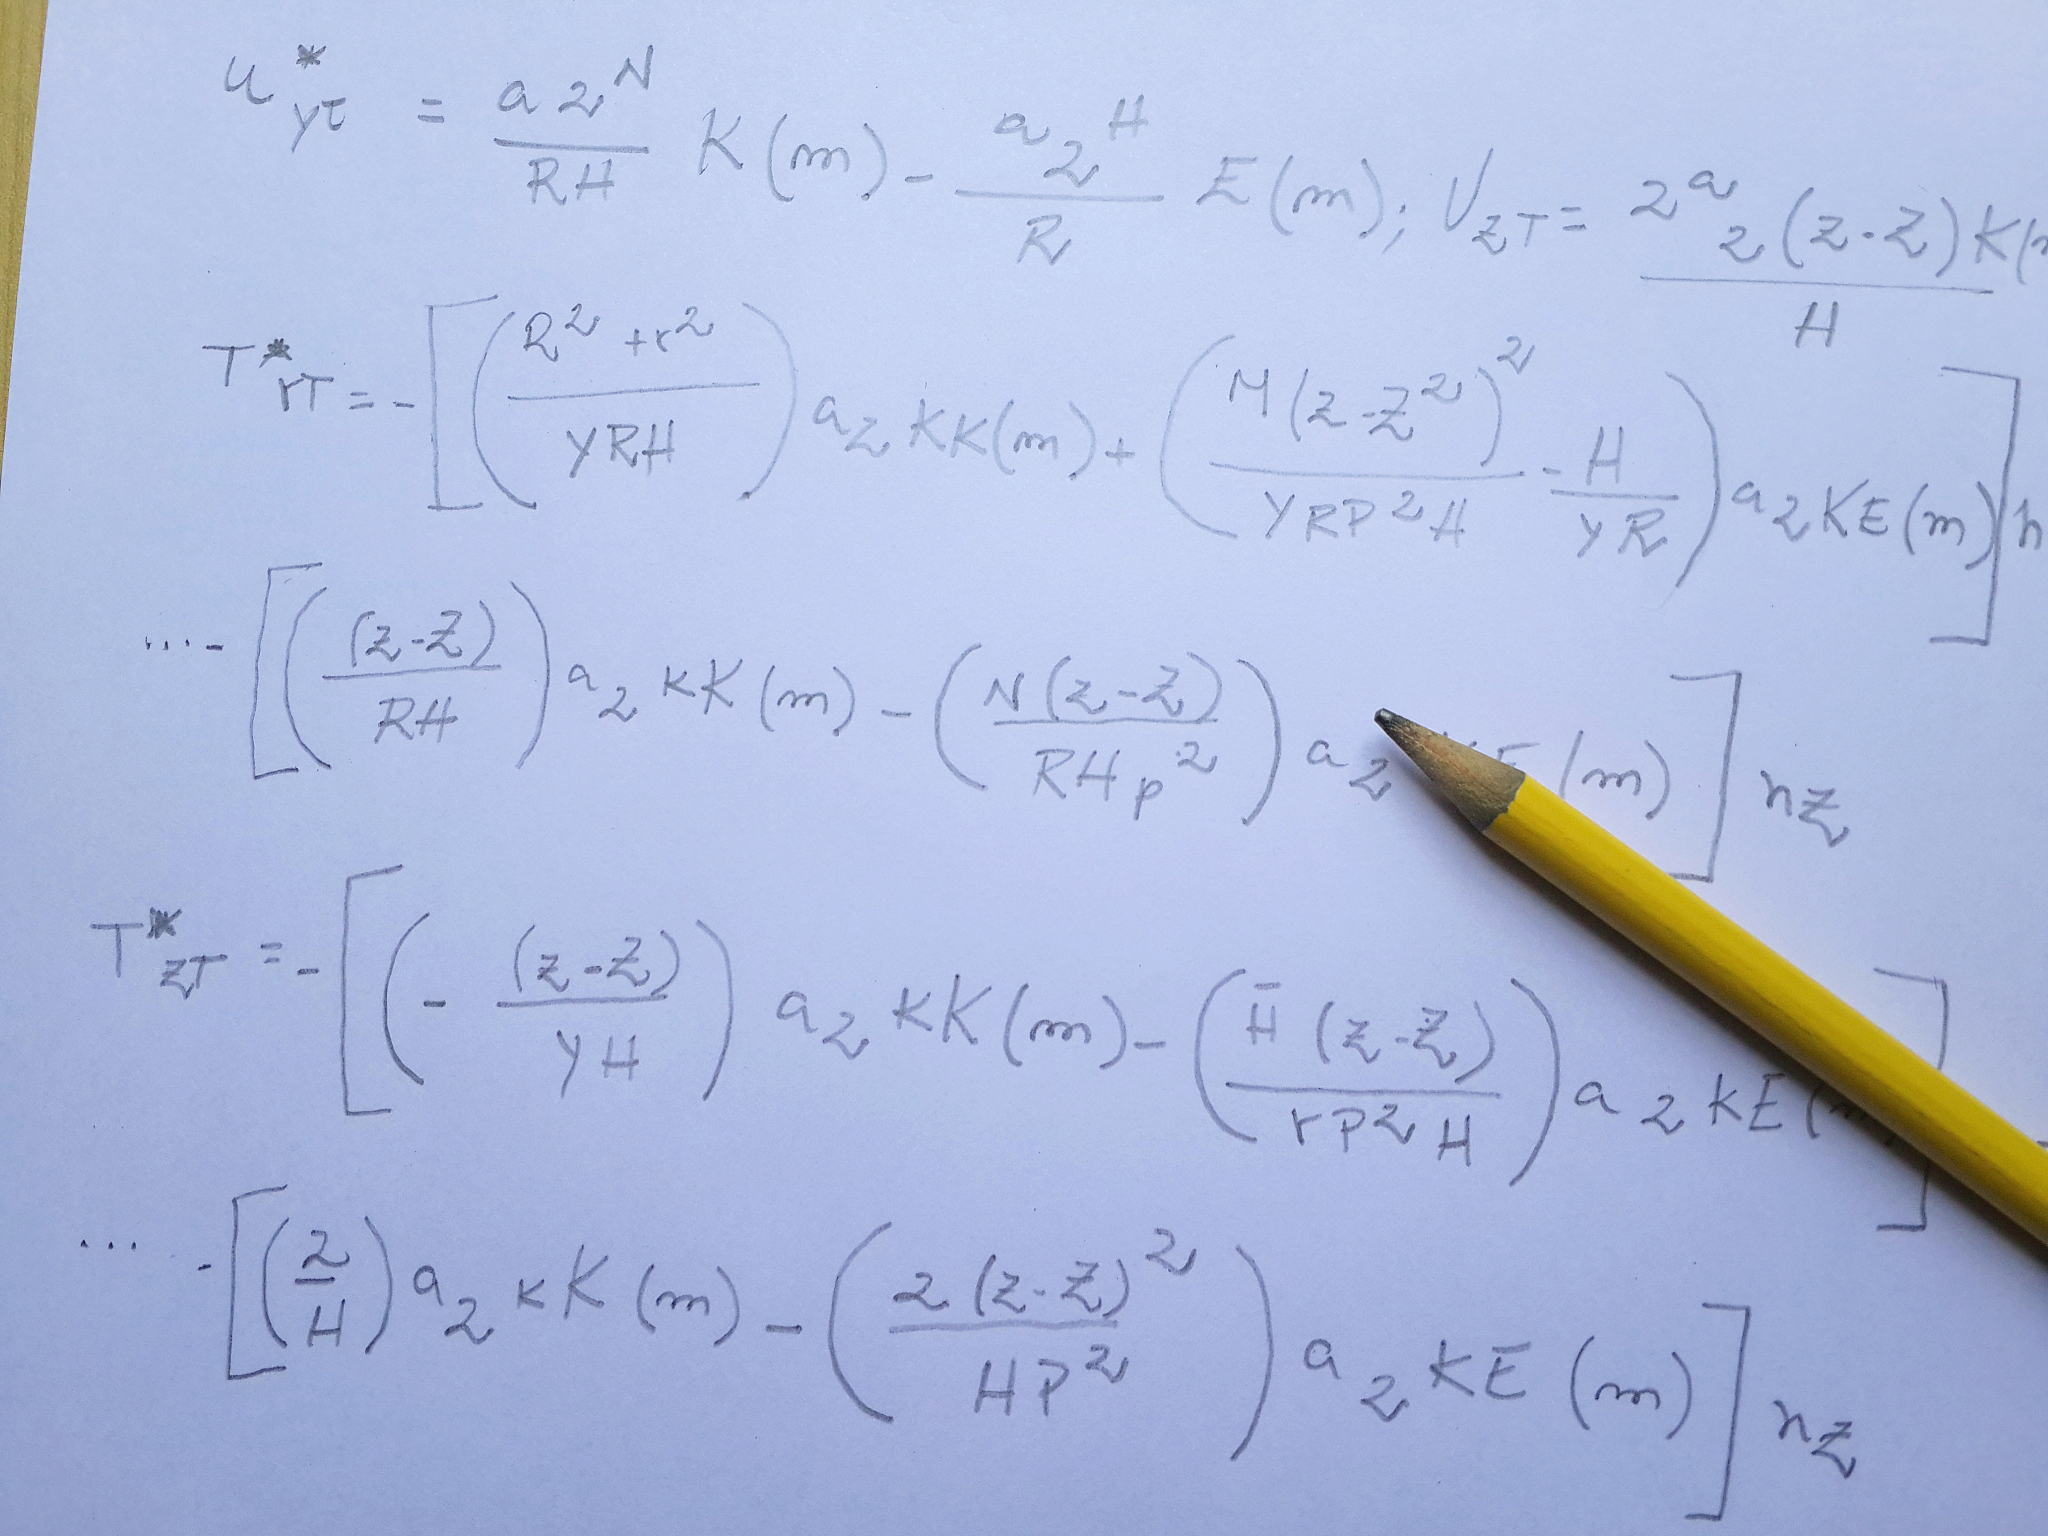 u*_yt = a2^N/RH K(m) - a_2^H/R E(m); U_ZT = 2^a_2(z-Z)K(m/H
T*_rT = -[((R^2+r^2)/YRH) a_2 KK(m) + (M(z-Z^2)^2/YRP^2H - H/YR) a_2 KE(m)]n
... -[((z-Z)/RH) a_2 KK(m) - (N(z-Z)/RHp^2) a_2 KE(m)] nz
T*_ZT = -[(-(z-Z)/YH) a_2 KK(m) - (H̄(z-Z)/rP2H) a_2 KE(m]
... -[(2/H) a_2 KK(m) - (2(z-Z)^2/HP^2) a_2 KE(m)] nz